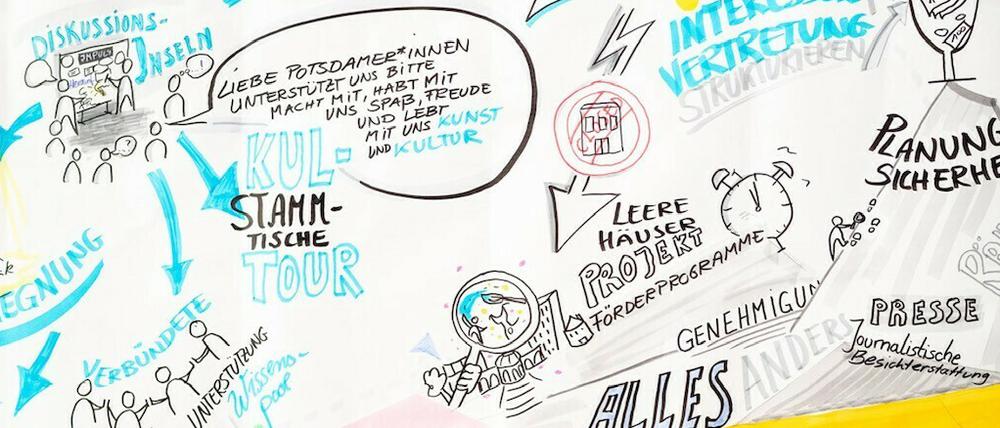 DISKUSSIONS-
INSELN
IMPULS
LIEBE POTSDAMER*INNEN
UNTERSTÜTZT UNS BITTE
MACHT MIT, HABT MIT
UNS SPAß, FREUDE
UND LEBT
MIT UNS KUNST
UND KULTUR
KUL-
STAMM-
TISCHE
TOUR
EGNUNG
VERBÜNDETE
UNTERSTÜTZUNG
Wissens-
pool
VERTRETUNG
STRUKTURIEREN
LEERE
HÄUSER
PROJEKT
FÖRDERPROGRAMME
GENEHMIGUN
ALLES ANDERS
PLANUNG
SICHERHE
PRESSE
Journalistische
Besichterstattung